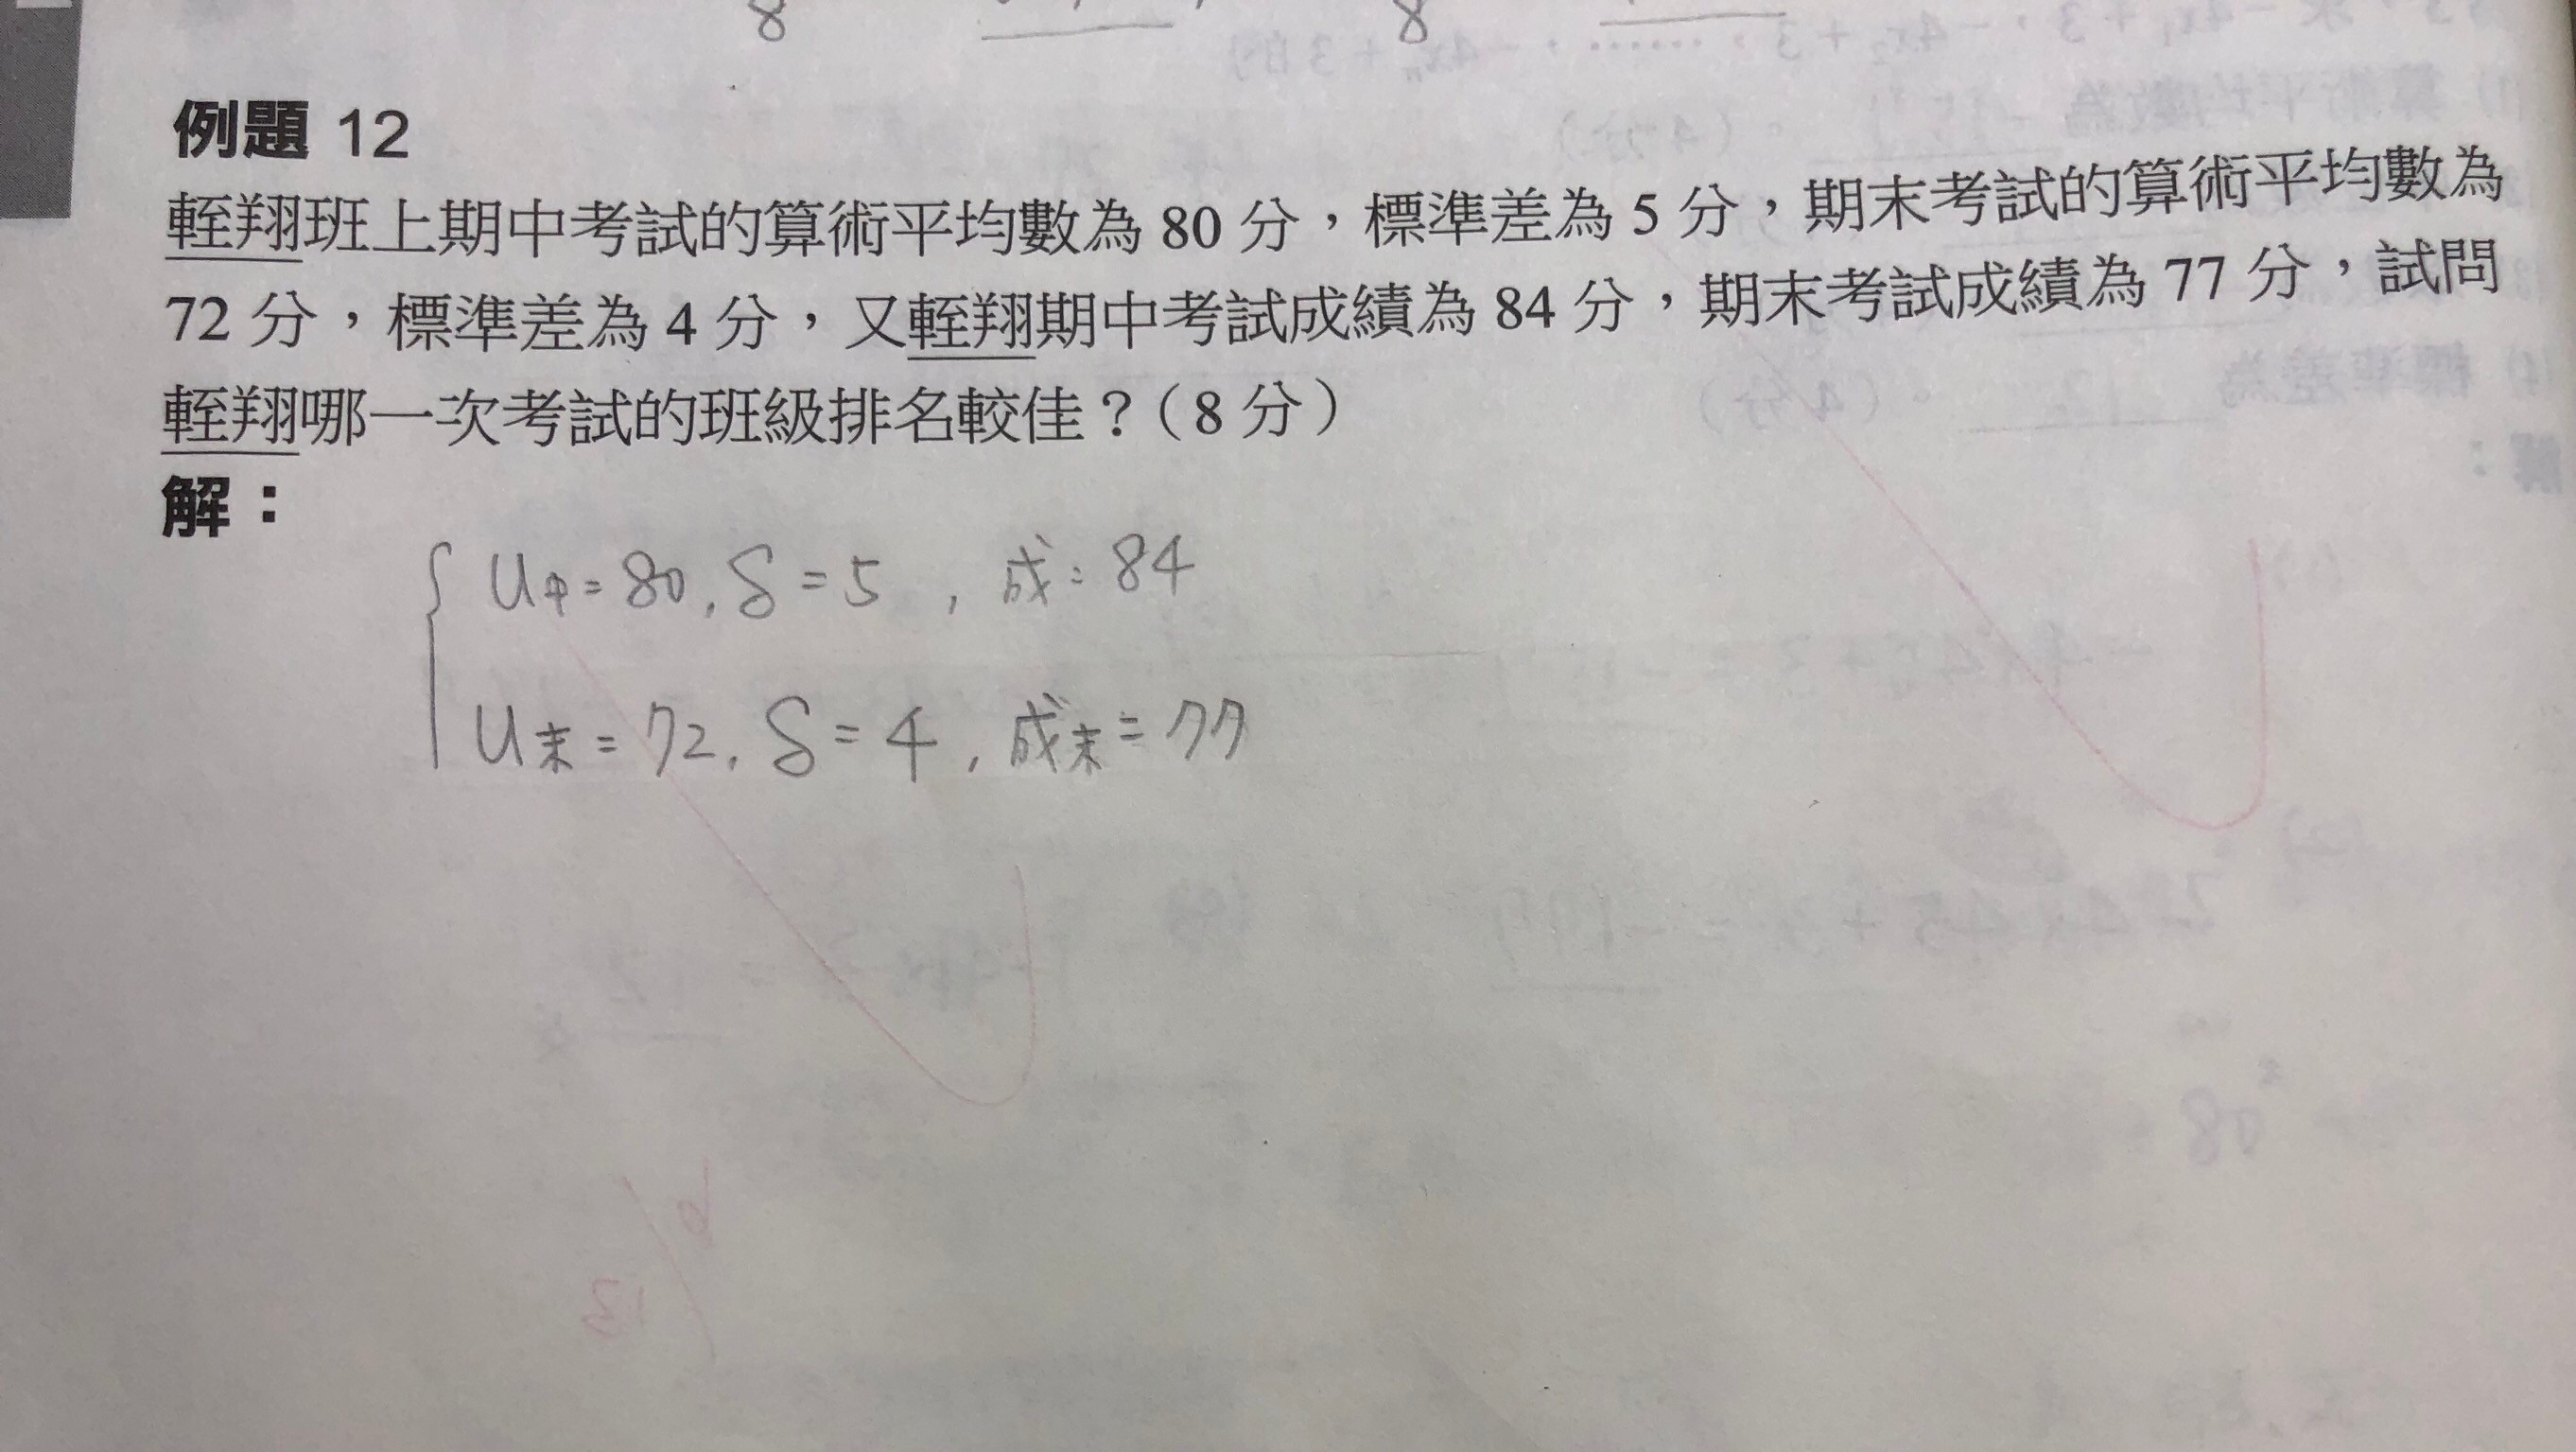 8 8
例題 12
輊翔班上期中考試的算術平均數為 80 分，標準差為 5 分，期末考試的算術平均數為
72 分，標準差為 4 分，又輊翔期中考試成績為 84 分，期末考試成績為 77 分，試問
輊翔哪一次考試的班級排名較佳？（8 分）
解：
U中=80, δ=5 , 成=84
U末=72, δ=4, 成末=77